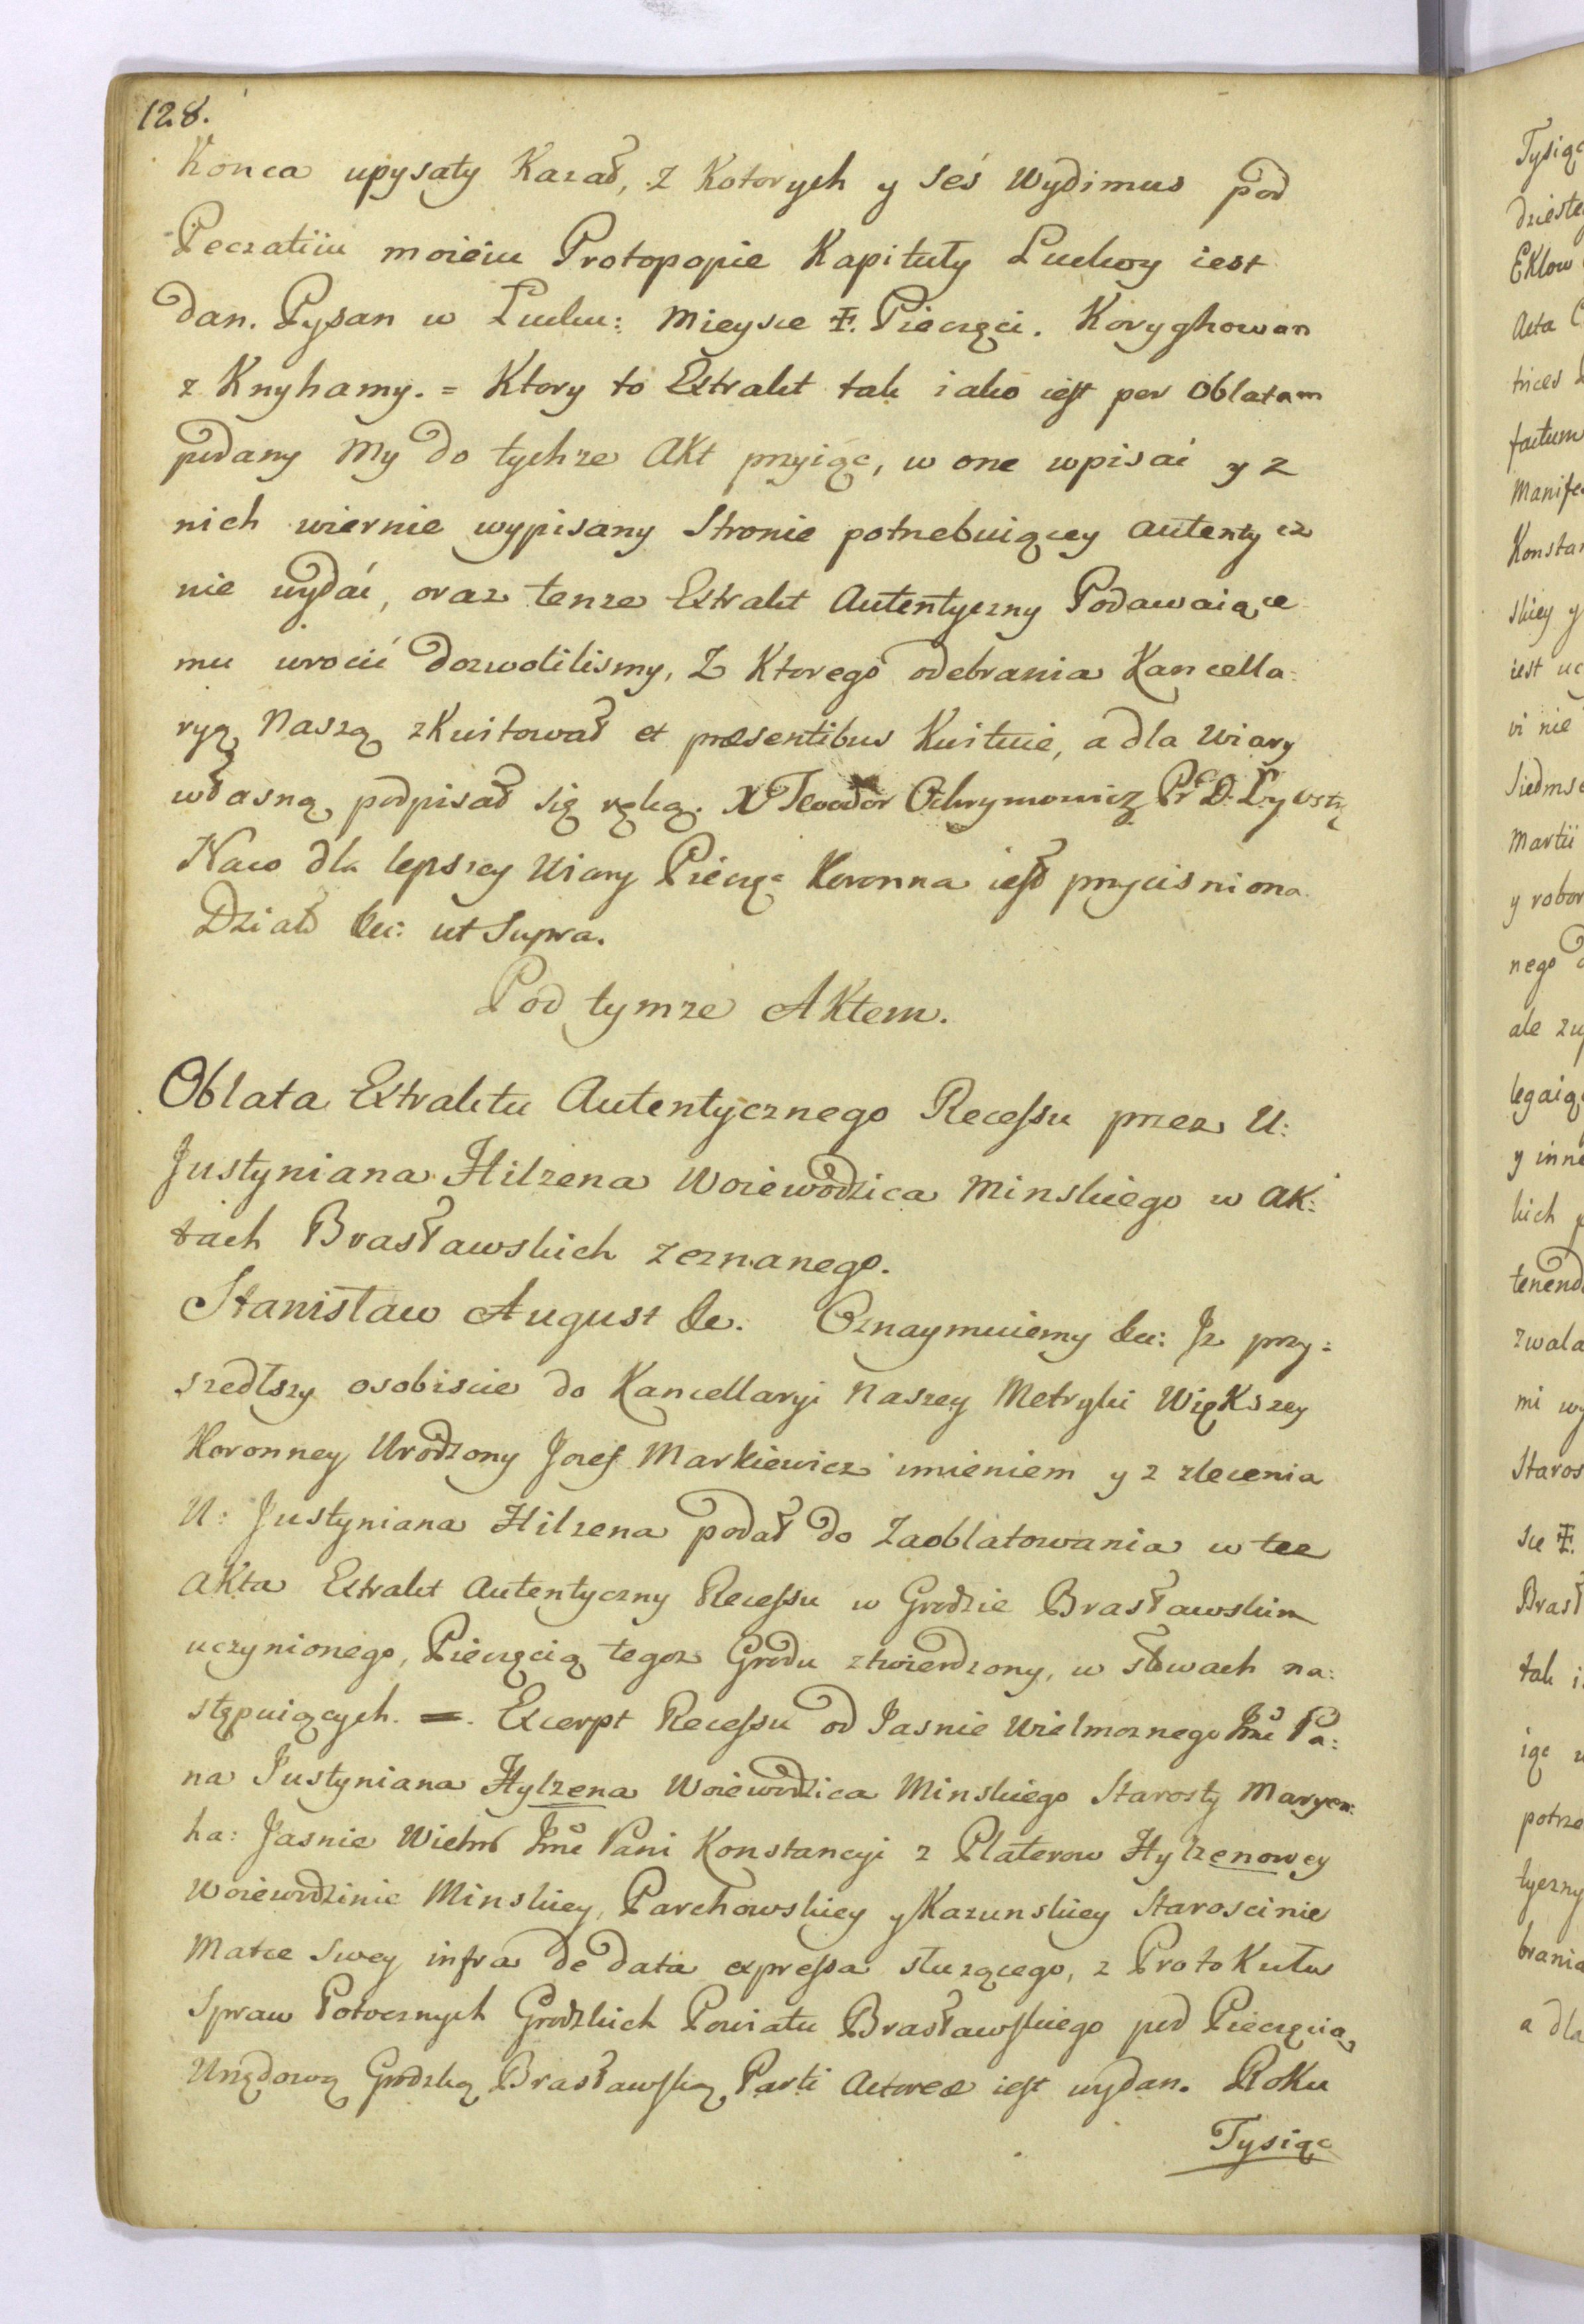 128.
Konca upysaty Kazał, z Kotorych y seś Wydimus pod
Peczatiiu moieiu Protopopie Kapituły Łuckoy iest
dan. Pysan w Łucku: Mieysce Ŧ. Pieczęci. Koryghowan
z Knyhamy. = Ktory to Extrakt tak iako iest per Oblatam
podany My do tychze Akt przyiąc, w one wpisać y z
nich wiernie wypisany Stronie potrzebuiącey autentycz
nie wydać, oraz tenze Extrakt Autentyczny Podawaiące
mu wrocić dozwolilismy, Z Ktorego odebrania Kancella:
ryą Naszą zKwitował et præsentibus Kwituie, a dla Wiary
własną podpisał się ręką. X Teodor Ochrymowicz Pr D: Ł: y Ostr
Naco dla lepszey Wiary Pieczęc Koronna iest przycisniona.
Dział &c: ut Supra.
Pod tymze Aktem.
Oblata Extraktu Autentycznego Recessu przez U:
Justyniana Hilzena Woiewodzica Minskiego w Ak:
tach Brasławskich zeznanego.
Stanisław August &c. Oznaymuiemy &c: Jz przy:
szedłszy osobiscie do Kancellaryi Naszey Metryki Większey
Koronney Urodzony Jozef Markiewicz imieniem y z zlecenia
U: Justyniana Hilzena podał do Zaoblatowania w tez
Akta Extrakt Autentyczny Recessu w Grodzie Brasławskim
uczynionego, Pieczęcią tegoz Grodu ztwierdzony, w słowach na:
stępuiących. =. Excerpt Recessu od Jasnie Wielmoznego Jmci Pa:
na Justyniana Hylzena Woiewodzica Minskiego Starosty Maryen:
ha: Jasnie Wielm Jmci Pani Konstancyi z Platerow Hylzenowey
Woiewodzinie Minskiey, Parchowskiey y Kazunskiey Staroscinie
Matce Swey infra de data expressa słuzącego, z ProtoKułu
Spraw Potocznych Grodzkich Powiatu Brasławskiego pod Pieczęcią
Urzędową Grodzką Brasławską Parti Actoreæ iest wydan. Roku
Tysiąc